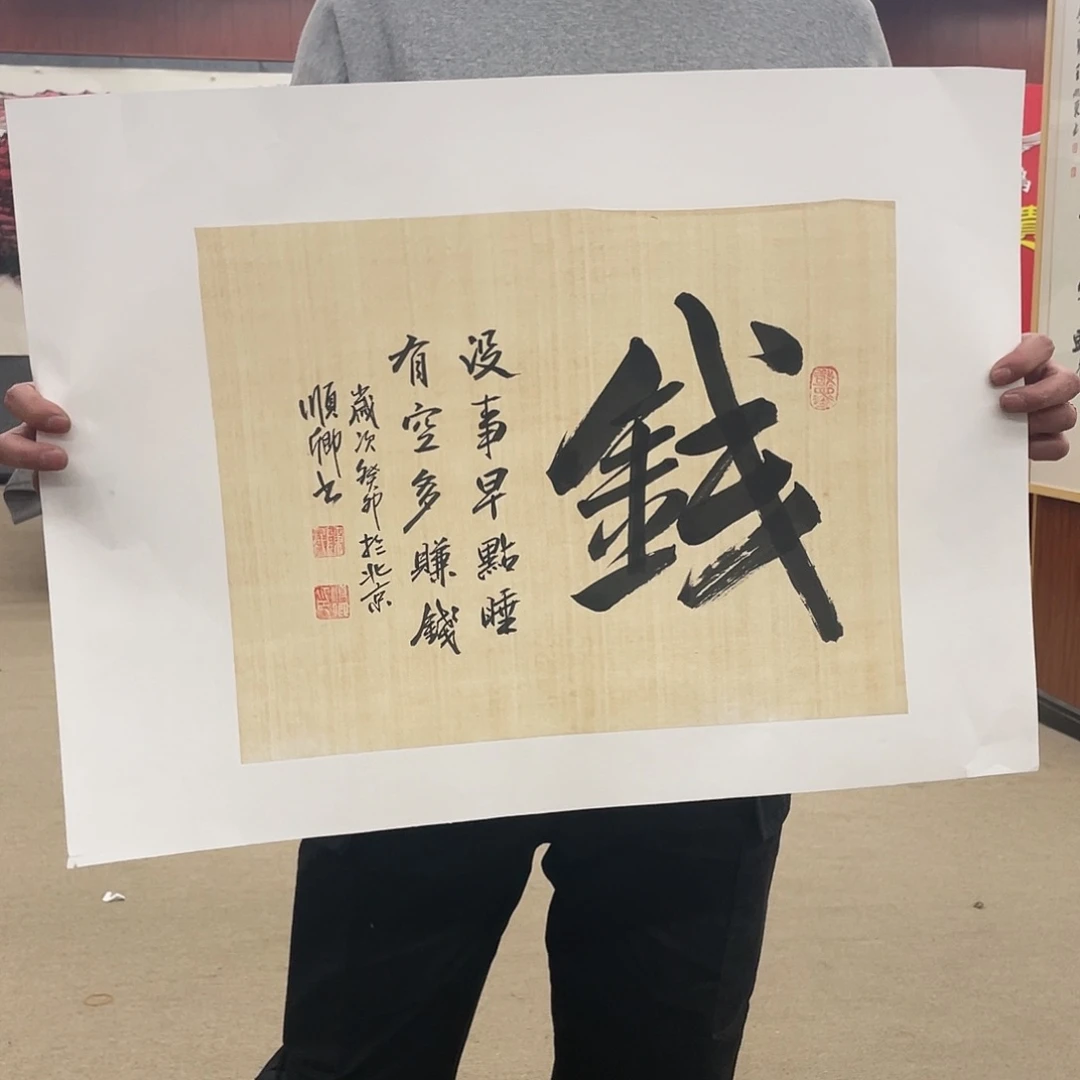 錢
没事早點睡
有空多賺錢
歲次癸卯於北京
順卿书